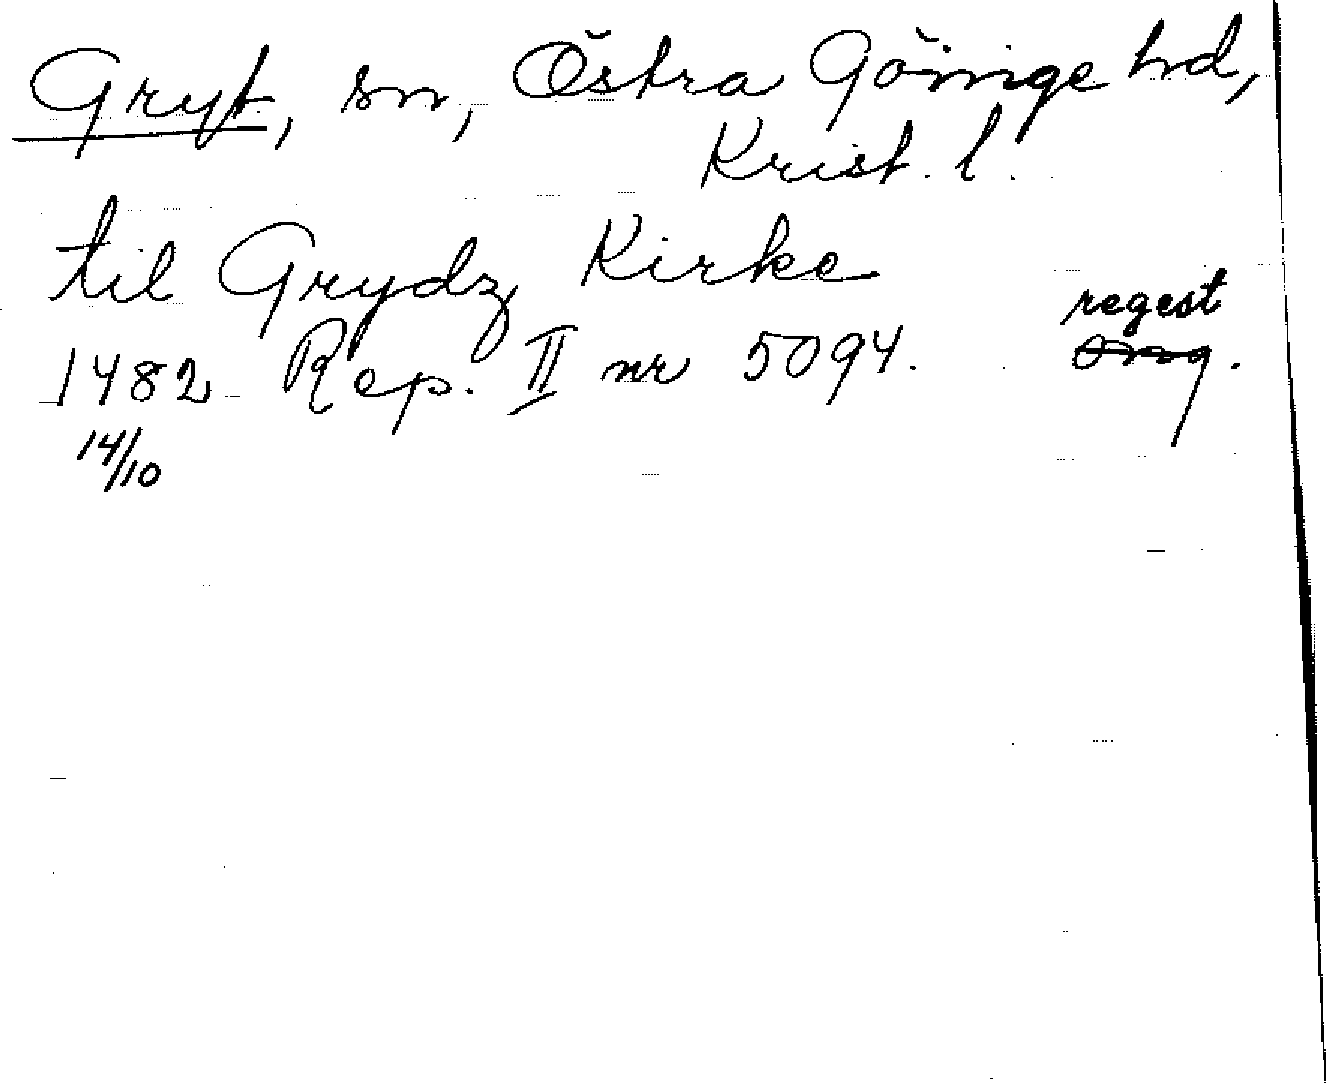 Gryt, sn, Östra Göinge hd,
Krist. l.
til Grydz Kirke
regest
1482 Rep. II nr 5094. orig.
14/10